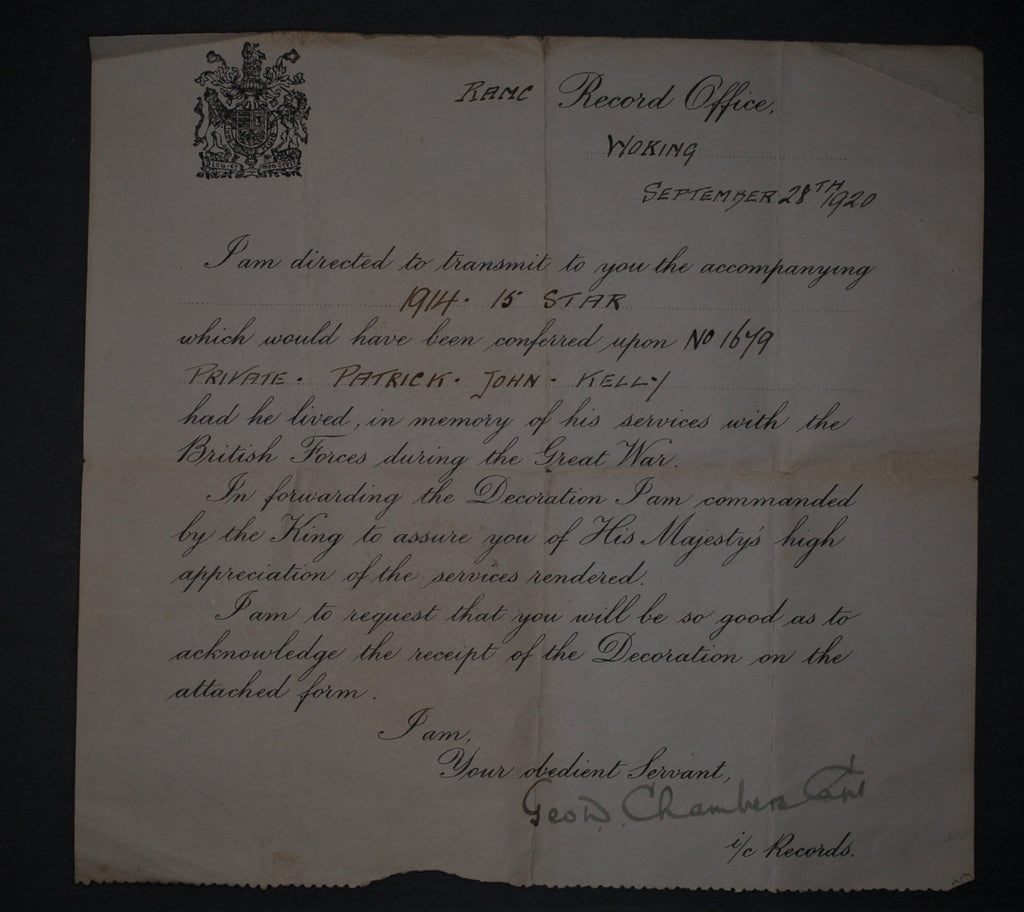 RAMC Record Office,
WOKING
SEPTEMBER 28TH 1920
I am directed to transmit to you the accompanying
1914. 15 STAR
which would have been conferred upon No 1679
PRIVATE. PATRICK. JOHN. KELLY
had he lived, in memory of his services with the
British Forces during the Great War.
In forwarding the Decoration I am commanded
by the King to assure you of His Majesty's high
appreciation of the services rendered.
I am to request that you will be so good as to
acknowledge the receipt of the Decoration on the
attached form.
I am,
Your obedient Servant,
Geo D. Chambers Capt
i/c Records.